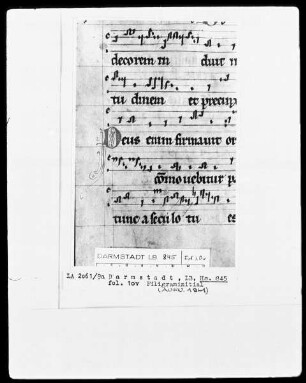 decorem in duit
tu dinem et precin
Deus enim firmavit or
comovebitur
tunc a seculo tu es
DARMSTADT LB 845 f.10v.
LA 2061/9a Darmstadt, LB, Hs. 845
fol. 10v Filigraninitial